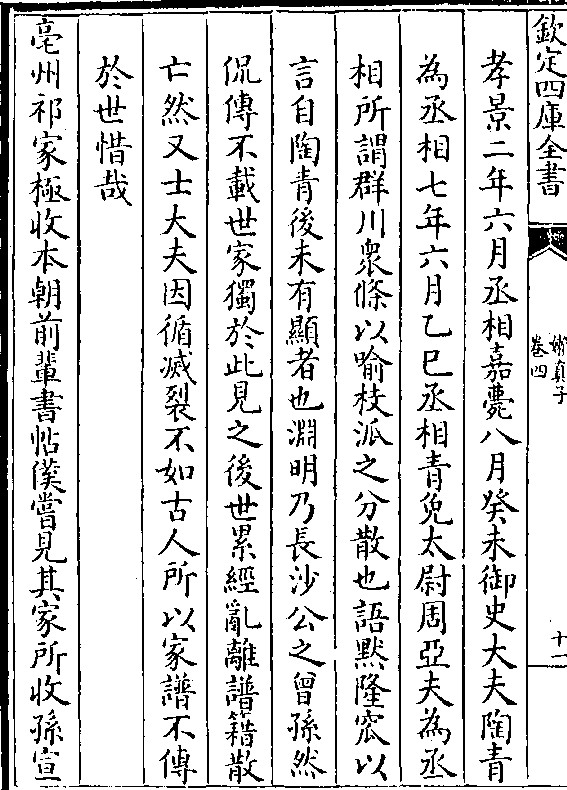 欽定四庫全書
嬾真子
卷四
十一
孝景二年六月丞相嘉薨八月癸未御史大夫陶青
為丞相七年六月乙巳丞相青免太尉周亞夫為丞
相所謂群川衆條以喻枝派之分散也語黙隆窊以
言自陶青後未有顯者也淵明乃長沙公之曾孫然
侃傳不載世家獨於此見之後世累經亂離譜籍散
亡然又士大夫因循滅裂不如古人所以家譜不傳
於世惜哉
亳州祁家極收本朝前輩書帖僕嘗見其家所收孫宣